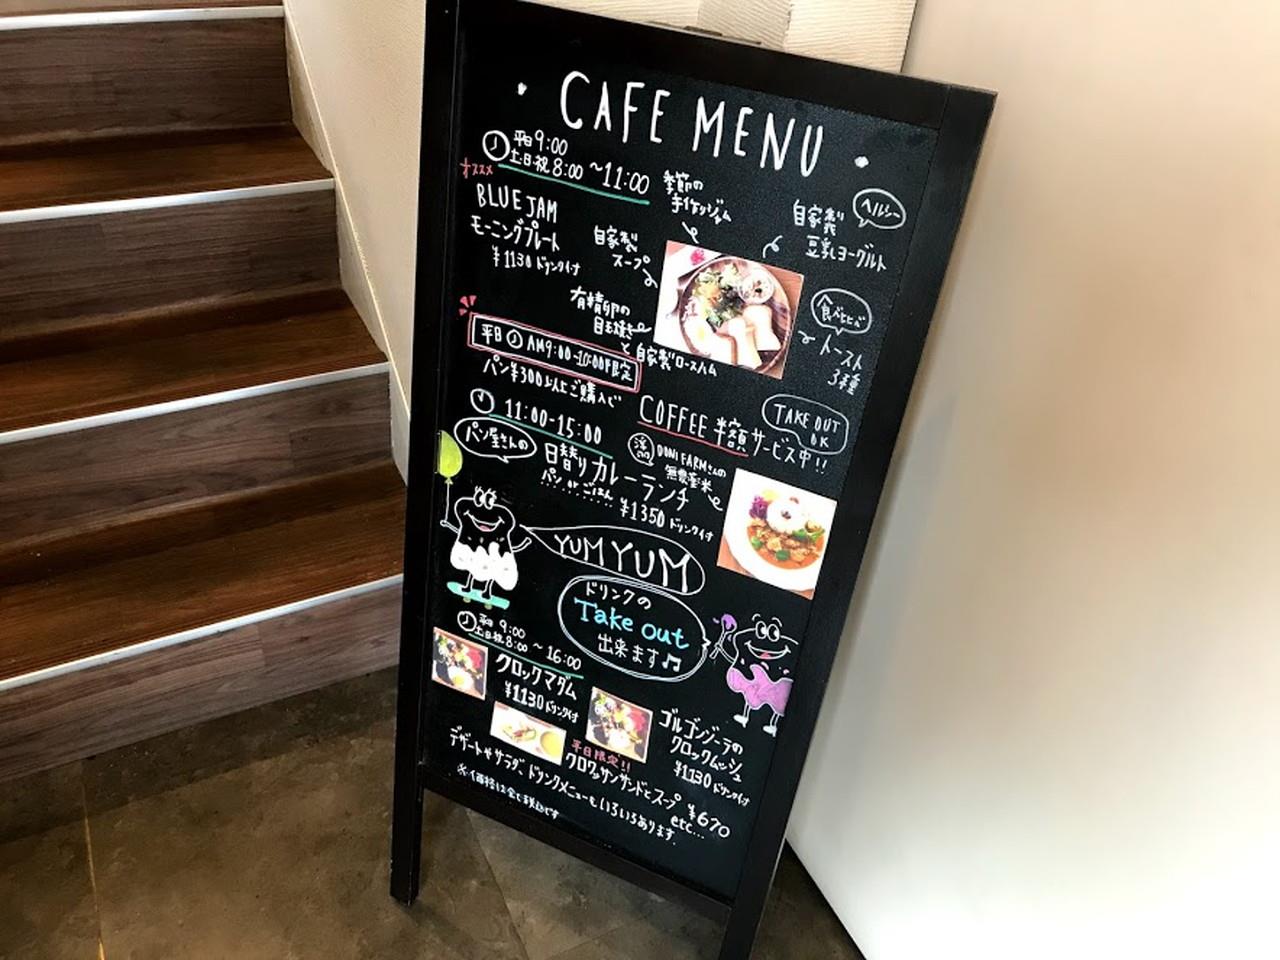 CAFE MENU
平日 9:00
土・日・祝 8:00 ~11:00
オススメ
BLUE JAM
モーニングプレート
¥1130 ドリンク付
季節の
手作りジャム
ヘルシー
自家製
豆乳ヨーグルト
自家製
スープ
有精卵の
目玉焼き
と自家製ロースハム
トースト
3種
平日 AM9:00-10:00限定
パン¥300以上ご購入で
COFFEE 半額 サービス中!!
TAKE OUT
OK
11:00-15:00
パン屋さんの
日替りカレーランチ
パン or ごはん
¥1350 ドリンク付
DONI FARMさんの
無農薬米
YUM YUM
ドリンクの
Take out
出来ます♫
平日 9:00
土日祝 8:00 ~ 16:00
クロックマダム
¥1130 ドリンク付
ゴルゴンゾーラの
クロックムッシュ
¥1130 ドリンク付
平日限定!!
クロワッサンサンドとスープ ¥670
デザートやサラダ、ドリンクメニューもいろいろあります。
etc...
※価格は全て税込です